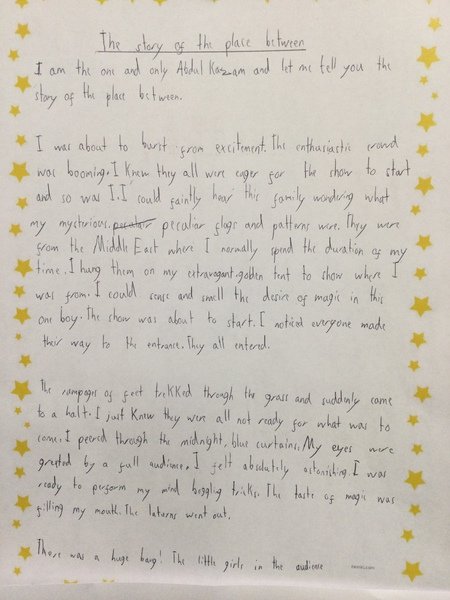 The story of the place between
I am the one and only Abdul Kazam and let me tell you the
story of the place between.
I was about to burst from excitement. The enthusiastic crowd
was booming. I knew they all were eager for the show to start
and so was I. I could faintly hear this family wondering what
my mysterious, peculiar peculiar flags and patterns were. They were
from the Middle East where I normally spend the duration of my
time. I hung them on my extravagant, golden tent to show where I
was from. I could sense and smell the desire of magic in this
one boy. The show was about to start. I noticed everyone made
their way to the entrance. They all entered.
The rampages of feet treKKed through the grass and suddenly came
to a halt. I just knew they were all not ready for what was to
come. I peered through the midnight, blue curtains. My eyes were
greeted by a full audience. I felt absolutely astonishing. I was
ready to perform my mind boggling tricks. The taste of magic was
filling my mouth. The laturns went out.
There was a huge bang! The little girls in the audience